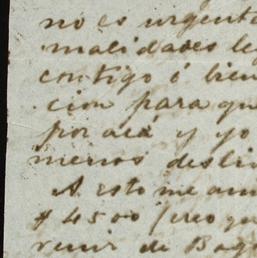 no es urgente
malidades le
contigo ó bien
cion para qu
por acá y yo
menos desli
A esto me am
$ 4500 pero qu
venir de Bog